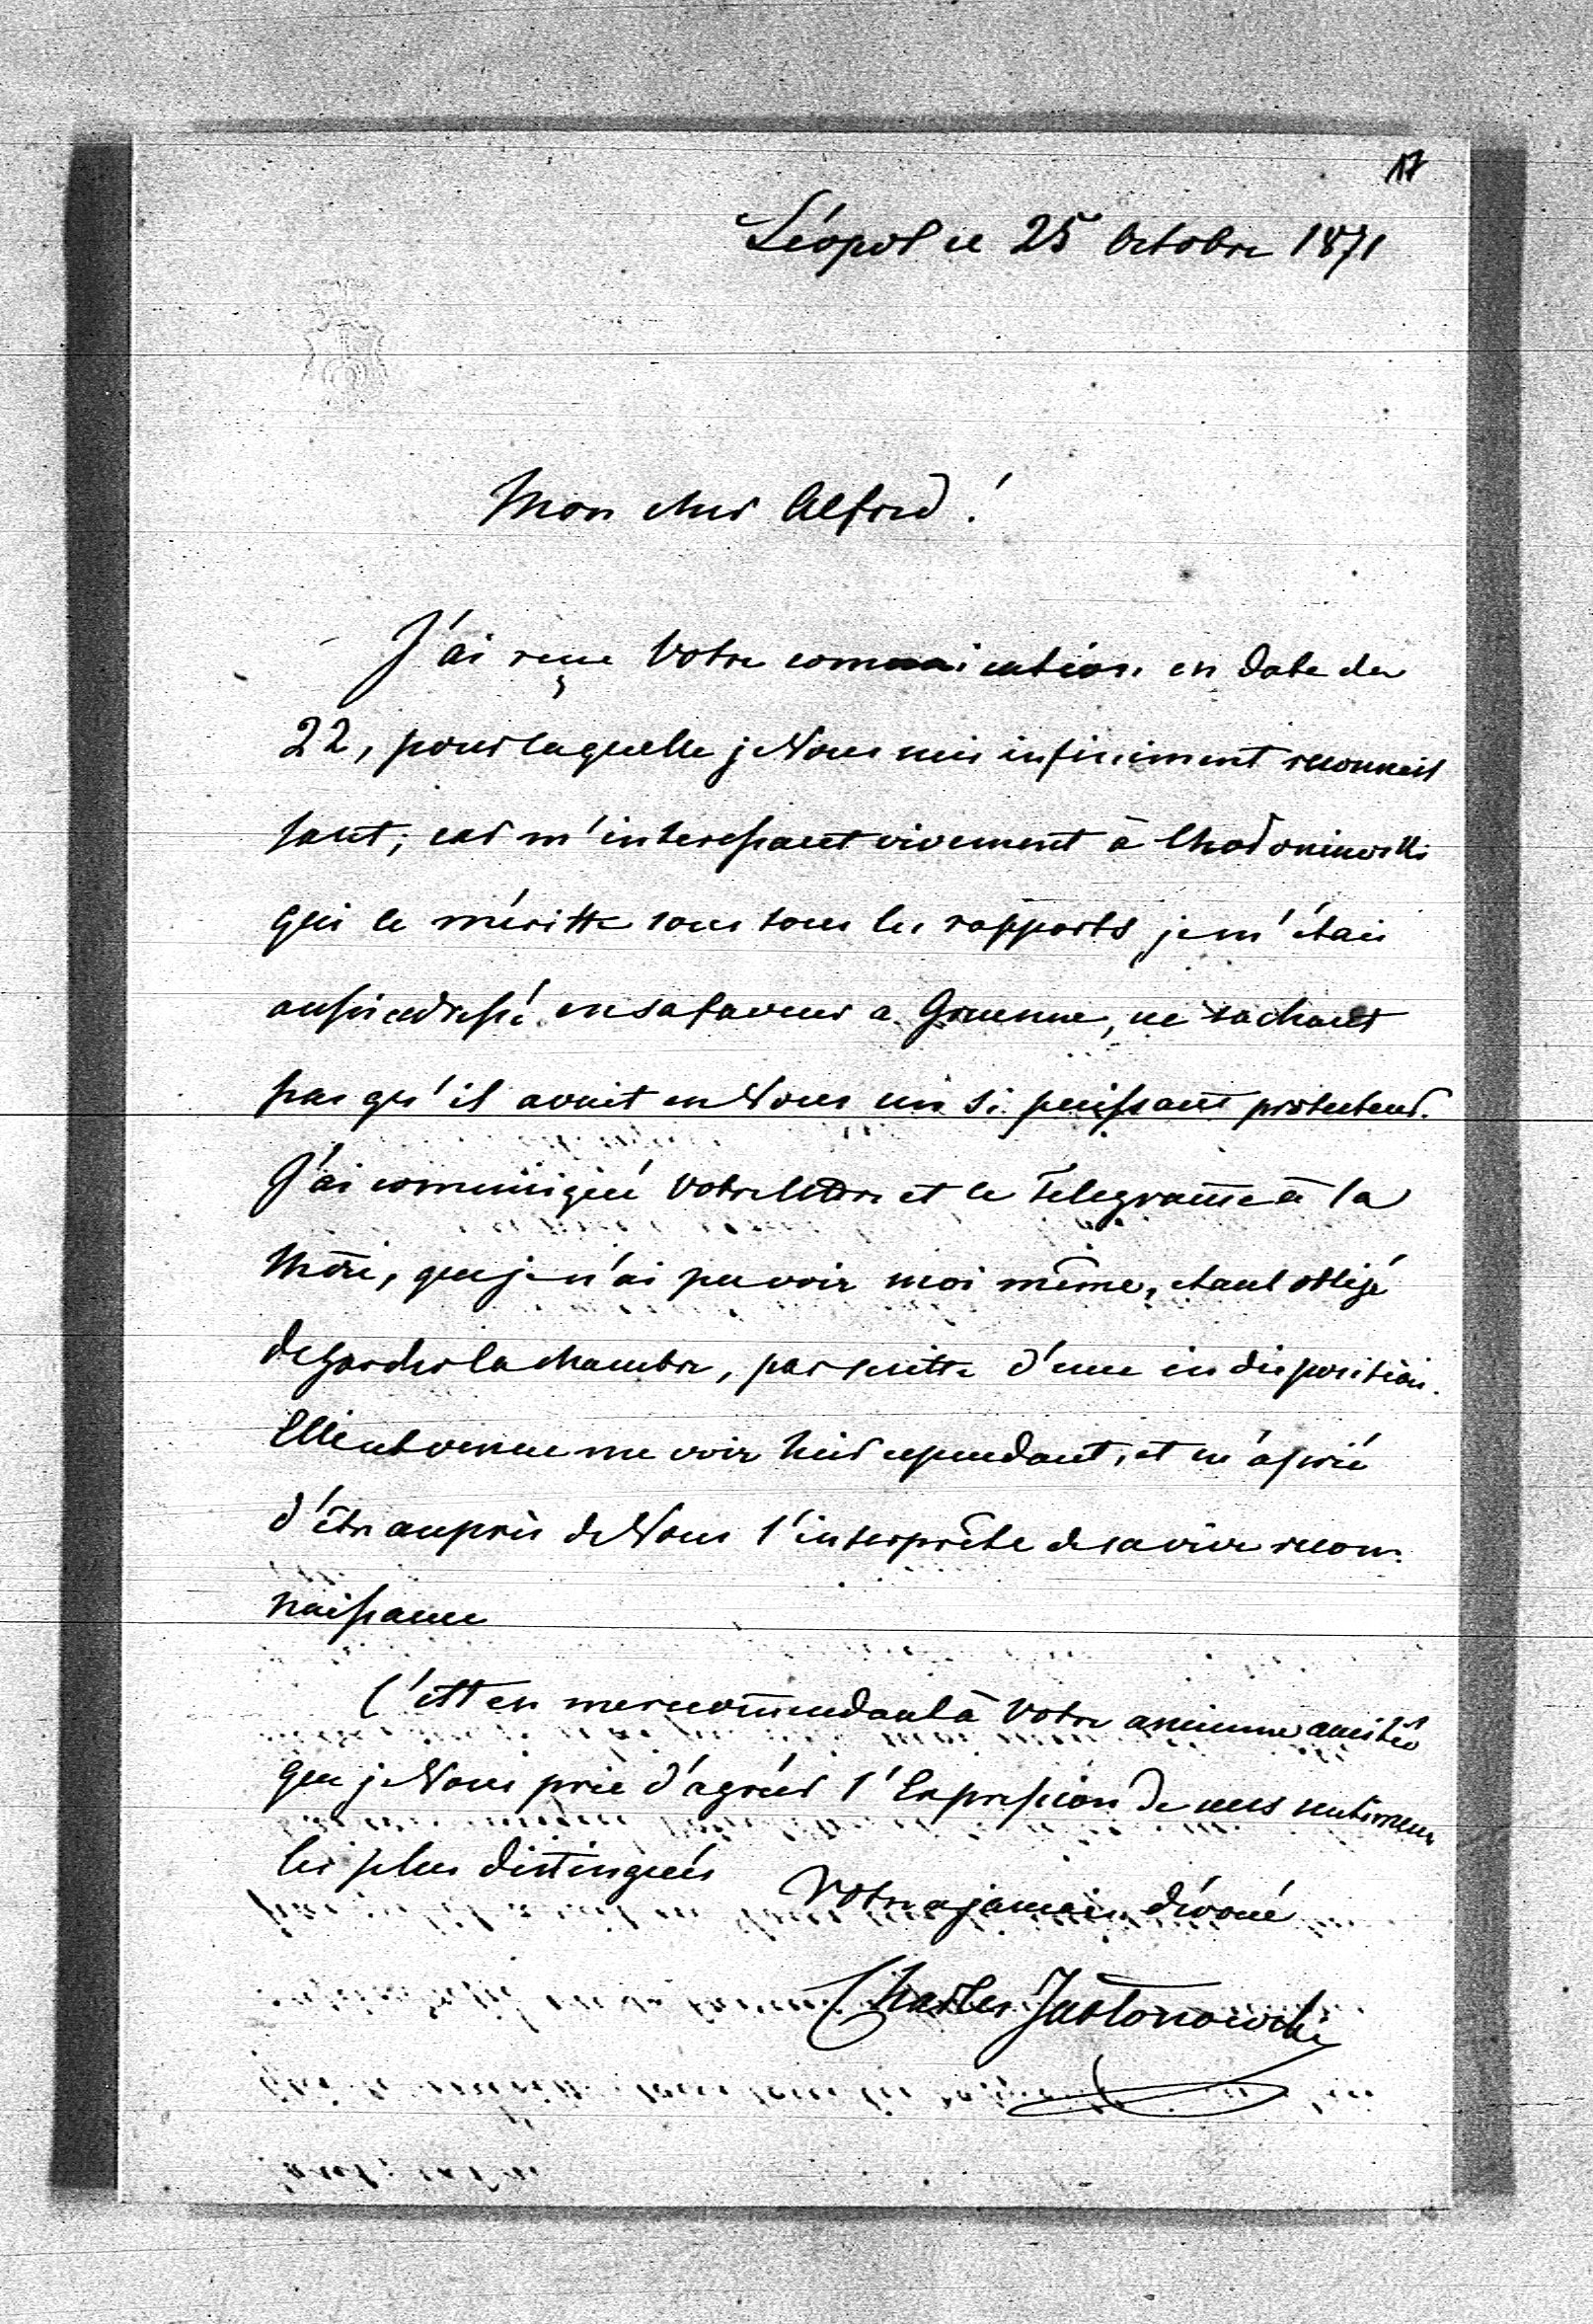 17
Léopol ce 25 Octobre 1871
Mon cher Alfred!
J'ai reçu Votre communication en date du
22, pour laquelle je Vous suis infiniment reconnais
sant; car m'interessant vivement à
qui le méritte sous tous les rapports, je m'étais
aussi adressé en sa faveur a Grunne, ne sachant
pas qu'il avait en Vous un si puissant protecteur.
J'ai communiqué Votre lettre et le Telegrame à la
Mère, que je n'ai pu voir moi même, etant obligé
de garder la chambre, par suitte d'une indisposition.
Elle est venue me voir hier cependant, et m'a prié
d'être auprès de Vous l'interprête de sa vive recon-
naissance
C'est en me recommendant à Votre ancienne amitié
que je Vous prie d'agréer l'Expression de mes sentimens
les plus distingués
Votre a jamais dévoué
Charles Jabłonowski